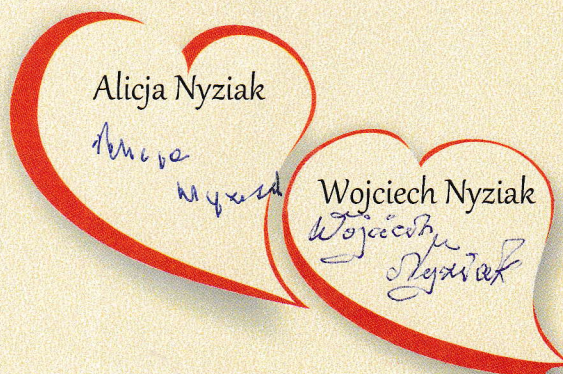 Alicja Nyziak
Alicja
Nyziak
Wojciech Nyziak
Wojciech
Nyziak